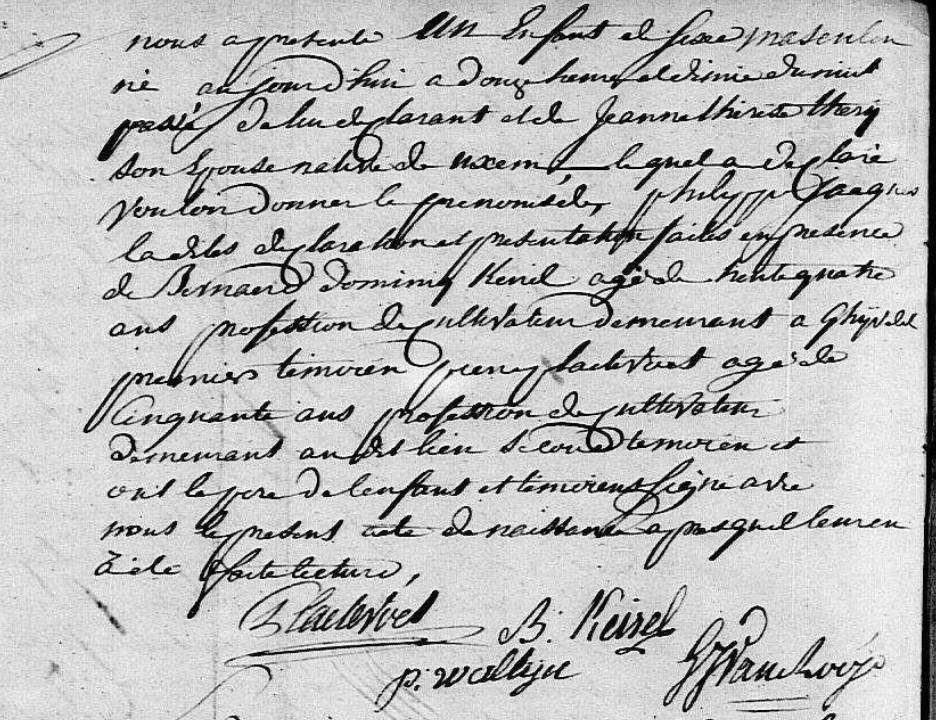 nous a presenté Un Enfant de sexe masculin
né aujourd'hui a douze heures et demie du minuit
passé de lui declarant et de Jeanne therese
son Epouse native de uxem, lequel a declaré
vouloir donner le prenoms de, philippe Jacques
la dites declaration et presentation faites en presence
de Bernard Dominiq Keirel agé de trente quatre
ans profession de cultivateur demeurant a Ghyvelde
premier temoien pierre placktvoet agé de
Cinquante ans profession de cultivateur
demeurant au dit lieu second temoien et
ont le pere de l'enfant et temoiens signé avec
nous le present acte de naissance apres qu'il leur en
à été faite lecture,
B. Keirel
p. wallyn